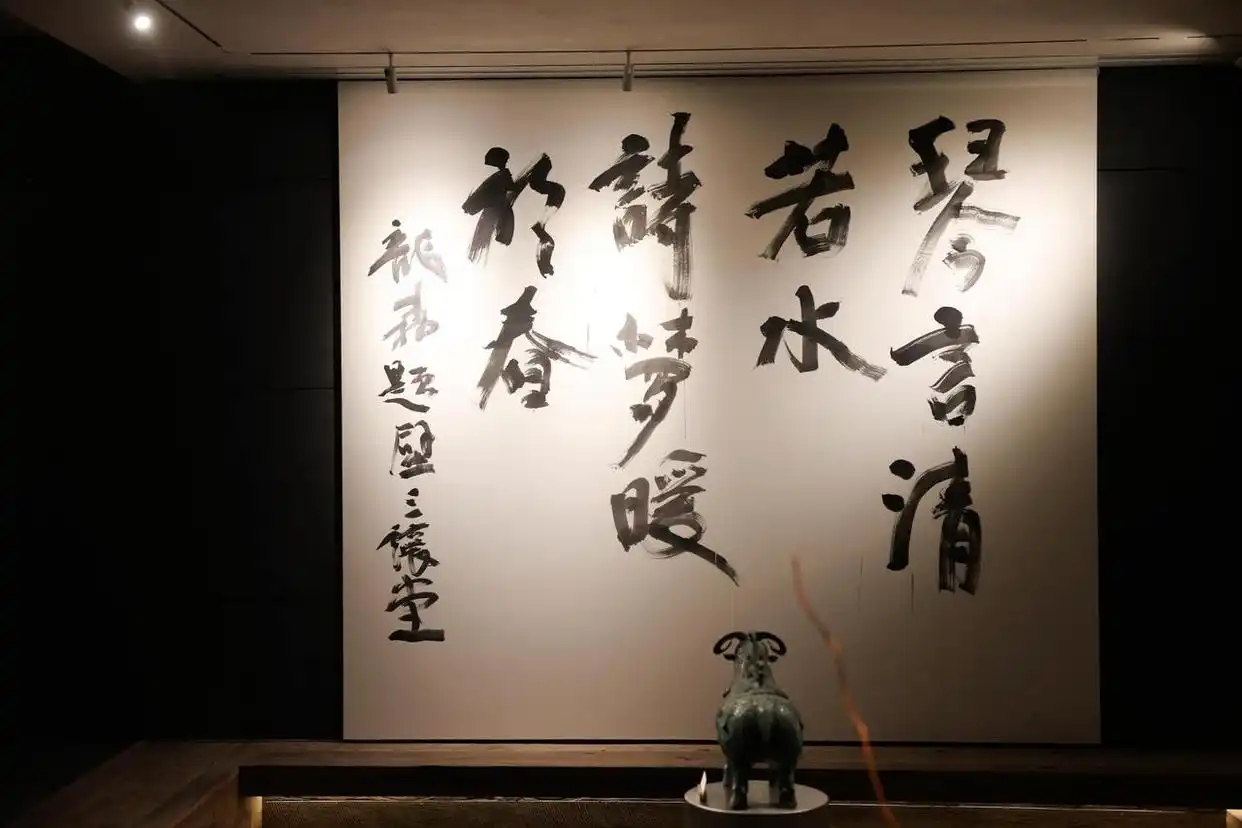 琴言清
若水
詩夢暖
於春
龍 題壁三讓堂